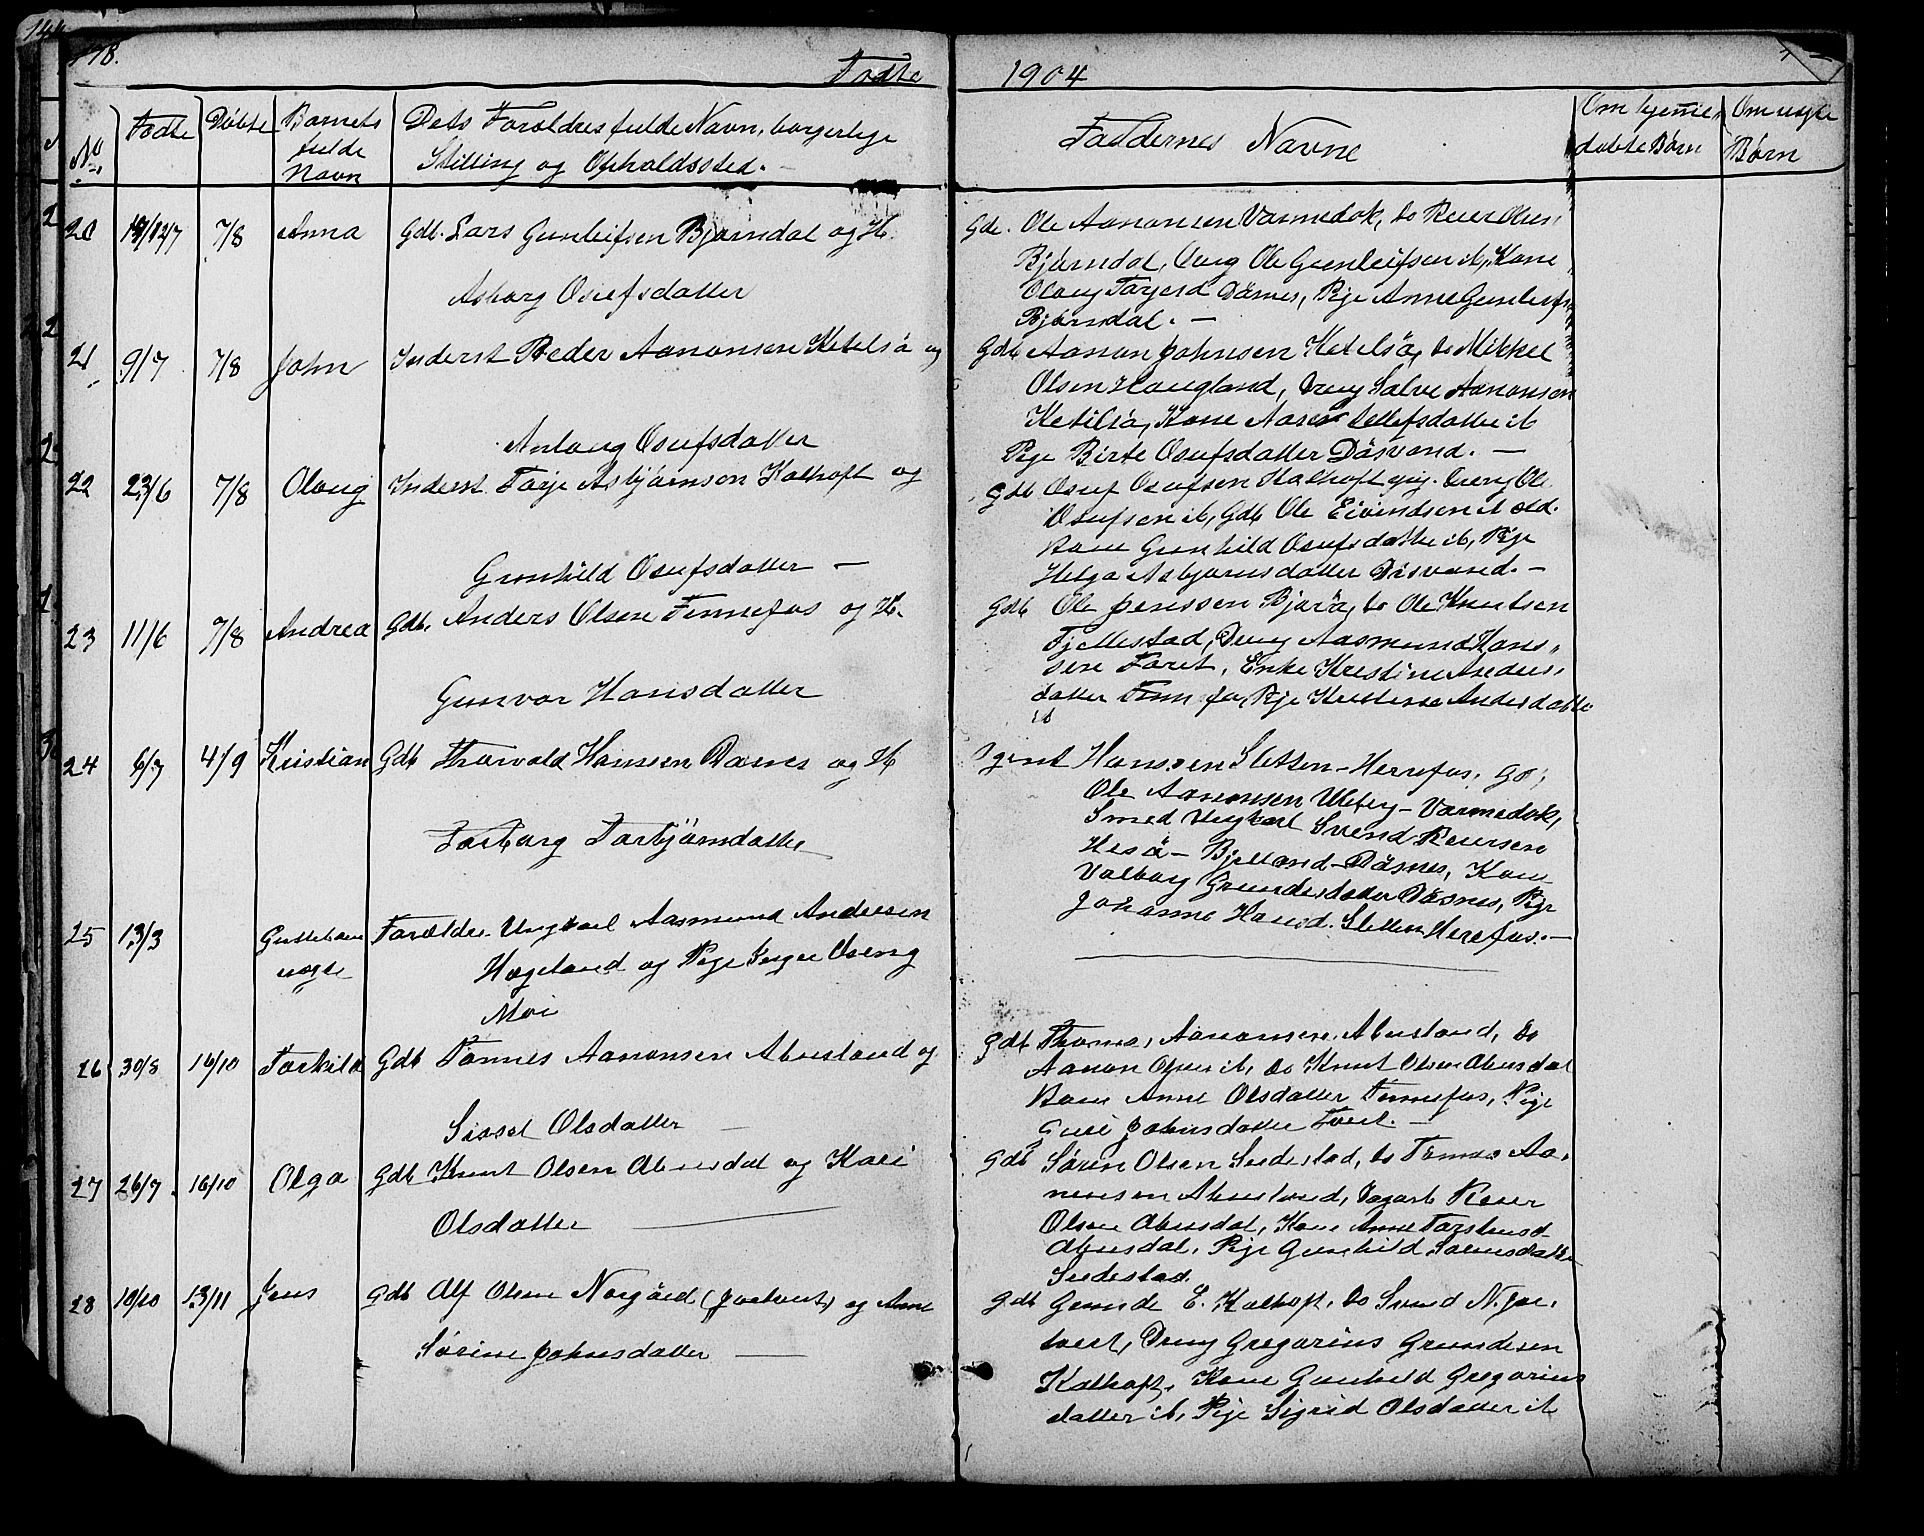 118.
Fødte
1904
No
Fødte
Døbte
Barnets fulde Navn
Dets Forældres fulde Navn, borgerlige
Stilling og Opholdssted. -
Faddernes Navne
Om hjemme-
døbte Børn
Om uægte
Børn
20 7/8 Anna Gdb. Lars Gunleifsen Bjørndal og H.
Asborg Osufsdatter
Gdb. Ole Aanonsen Varmedok, do Reier Olsen
Bjørndal, Ung Ole Gunleifsen ib, Kone
Olaug Dåsnes, Pige Anne Gunleifsd
Bjørndal. -
21 9/7 7/8 John Inderst Peder Aanonsen Ketelså og
Anlaug Osufsdatter
Gdb Aanon Johnsen Ketelså, do Mikkel
Olsen Haugland, Ung Salve Aanonsen
Ketilså, Kone Aase Tellefsdatter ib
Pige Birte Osufsdatter Dåsvand. -
22 23/6 7/8 Olaug Inderst. Tarje Asbjørnsen Kalhoft og
Gunhild Osufsdatter -
Gdb Osuf Osufsen Kalhoft Ung Ole
Osufsen ib, Gdb Ole Eivindsen ib
Kone Gunhild Osufsdatter ib, Pige
Helga Asbjørnsdatter Dåsvand. -
23 11/6 7/8 Andrea Gdb. Anders Olsen Finnefos og H.
Gunvor Hansdatter
Gdb Ole Jenssen Bjorå, do Ole Knutsen
Fjellestad, Ung Aasmund Hans-
sen Foret, Enke Kristine Anders-
datter Finnefos, Pige Andersdatter
ib
24 6/7 4/9 Kristian Gdb Thorvald Hanssen Dåsnes og H
Torborg Torbjørnsdatter
Hanssen Sletten - Herrefos, Gd;
Ole Aanonsen Ubeby - Varmedok,
Smed Ungkarl Svend Reiersen
Heså - Bjelland - Dåsnes, Kone
Valborg Grundesdatter Dåsnes, Pige
Johanne Hansd. Sletten Herefos. -
25 13/3 Guttebarn
uægte
Forældre. Ungkarl Aasmund Andersen
Hægeland og Pige Inger Oseng
Moi
26 30/8 16/10 Torkild Gdb Tomnes Aanonsen Abusland og
Sissel Olsdatter -
Gdb Thomas Aanonsen Abusland, do
Aanon Olsen ib, do Knut Olsen Abusdal
Kone Anne Olsdatter Finnefos, Pige
Guri Johnsdatter Tveit. -
27 26/7 16/10 Olga Gdb Knut Olsen Abusdal og Kari
Olsdatter
Gdb Søren Olsen Sudestad, do Tomas Aa-
nonsen Abusland, Dagarb Reier
Olsen Abusdal, Kone Anne Torstensd
Abusdal, Pige Gunhild Sørensdatter
Sudestad.
28 10/10 13/11 Jens Gdb Alf Olsen Norgård (Joretveit) og Anne
Sørine Johnsdatter -
Gdb Grunde E. Kalhoft, do Svend N. Jore-
tveit, Ung Gregorius Grundesen
Kalhoft, Kone Gunhild Gregorius
datter ib, Pige Sigrid Olsdatter ib